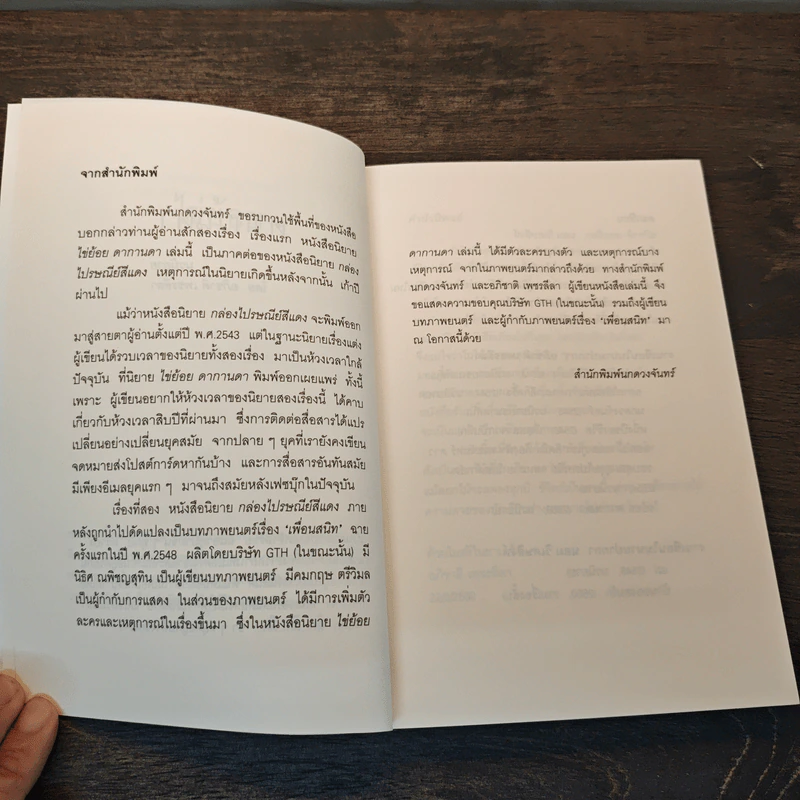 จากสำนักพิมพ์
สำนักพิมพ์นกดวงจันทร์ ขอรบกวนใช้พื้นที่ของหนังสือ
บอกกล่าวท่านผู้อ่านสักสองเรื่อง เรื่องแรก หนังสือนิยาย
ไข่ย้อย ดากานดา เล่มนี้ เป็นภาคต่อของหนังสือนิยาย กล่อง
ไปรษณีย์สีแดง เหตุการณ์ในนิยายเกิดขึ้นหลังจากนั้น เก้าปี
ผ่านไป
แม้ว่าหนังสือนิยาย กล่องไปรษณีย์สีแดง จะพิมพ์ออก
มาสู่สายตาผู้อ่านตั้งแต่ปี พ.ศ.2543 แต่ในฐานะนิยายเรื่องแต่ง
ผู้เขียนได้รวบเวลาของนิยายทั้งสองเรื่อง มาเป็นห้วงเวลาใกล้
ปัจจุบัน ที่นิยาย ไข่ย้อย ดากานดา พิมพ์ออกเผยแพร่ ทั้งนี้
เพราะ ผู้เขียนอยากให้ห้วงเวลาของนิยายสองเรื่องนี้ ได้คาบ
เกี่ยวกับห้วงเวลาสิบปีที่ผ่านมา ซึ่งการติดต่อสื่อสารได้แปร
เปลี่ยนอย่างเปลี่ยนยุคสมัย จากปลาย ๆ ยุคที่เรายังคงเขียน
จดหมายส่งโปสต์การ์ดหากันบ้าง และการสื่อสารอันทันสมัย
มีเพียงอีเมลยุคแรก ๆ มาจนถึงสมัยหลังเฟซบุ๊กในปัจจุบัน
เรื่องที่สอง หนังสือนิยาย กล่องไปรษณีย์สีแดง ภาย
หลังถูกนำไปดัดแปลงเป็นบทภาพยนตร์เรื่อง 'เพื่อนสนิท' ฉาย
ครั้งแรกในปี พ.ศ.2548 ผลิตโดยบริษัท GTH (ในขณะนั้น) มี
นิธิศ ณพิชญสุทิน เป็นผู้เขียนบทภาพยนตร์ มีคมกฤษ ตรีวิมล
เป็นผู้กำกับการแสดง ในส่วนของภาพยนตร์ ได้มีการเพิ่มตัว
ละครและเหตุการณ์ในเรื่องขึ้นมา ซึ่งในหนังสือนิยาย ไข่ย้อย
ดากานดา เล่มนี้ ได้มีตัวละครบางตัว และเหตุการณ์บาง
เหตุการณ์ จากในภาพยนตร์มากล่าวถึงด้วย ทางสำนักพิมพ์
นกดวงจันทร์ และอภิชาติ เพชรลีลา ผู้เขียนหนังสือเล่มนี้ จึง
ขอแสดงความขอบคุณบริษัท GTH (ในขณะนั้น) รวมถึงผู้เขียน
บทภาพยนตร์ และผู้กำกับภาพยนตร์เรื่อง 'เพื่อนสนิท' มา
ณ โอกาสนี้ด้วย
สำนักพิมพ์นกดวงจันทร์